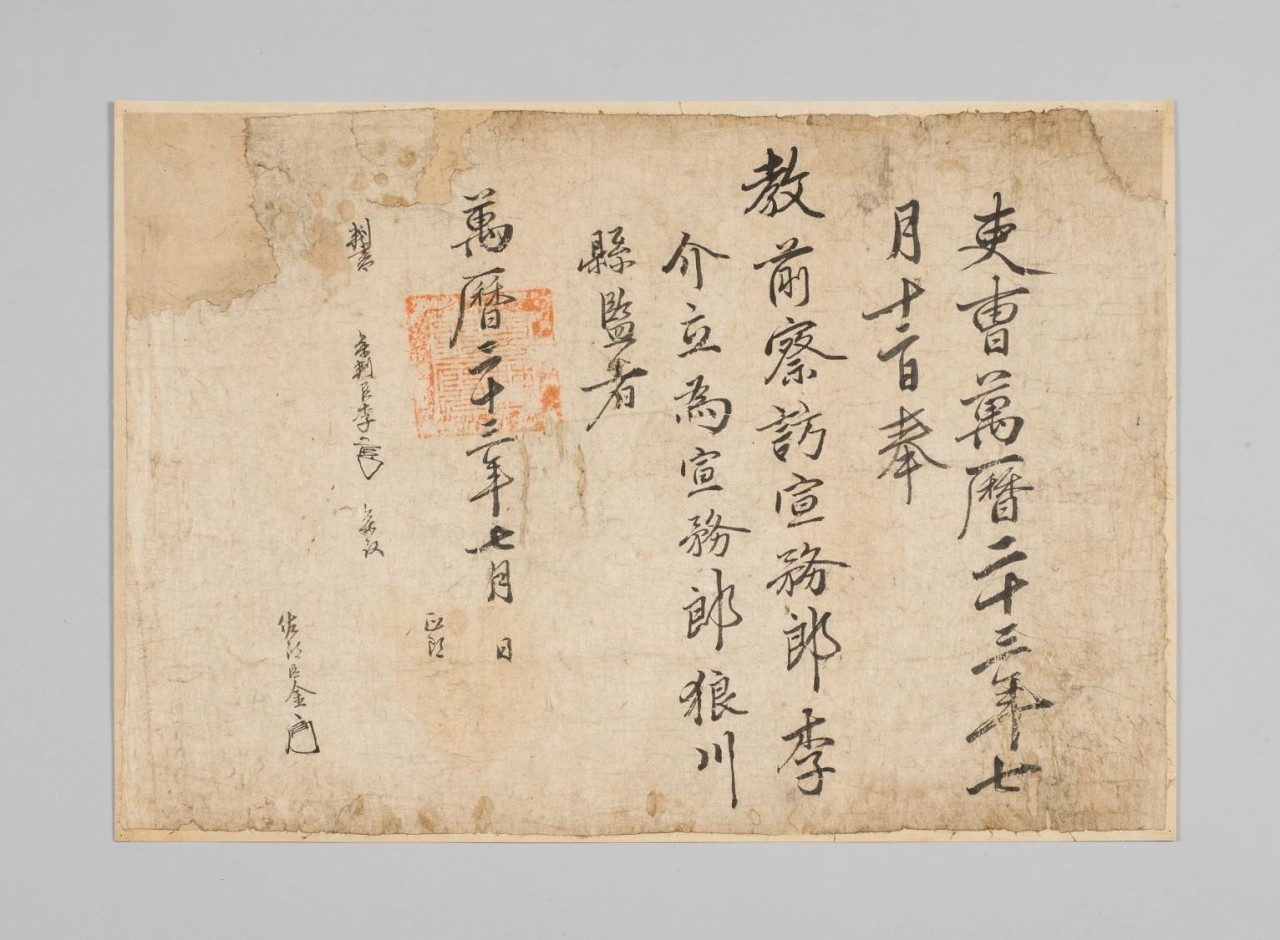 吏曹萬曆二十三年七
月十二日奉
教前察訪宣務郎李
介立為宣務郎狼川
縣監者
萬曆二十三年七月 日
判書 參判臣李 參議
正郎
佐郎臣金